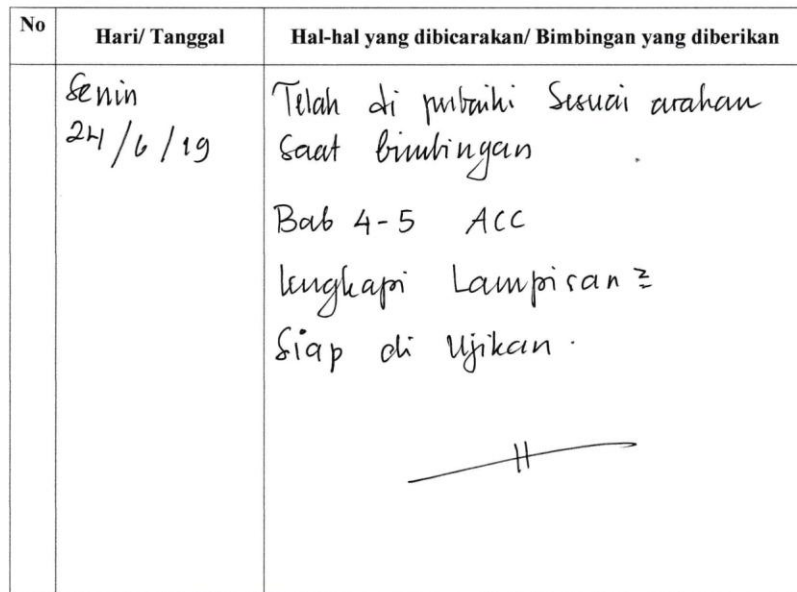 No Hari/ Tanggal Hal-hal yang dibicarakan/ Bimbingan yang diberikan
Senin
24/6/19
Telah di perbaiki Sesuai arahan
Saat bimbingan
Bab 4-5 ACC
lengkapi Lampiran²
Siap di Ujikan.